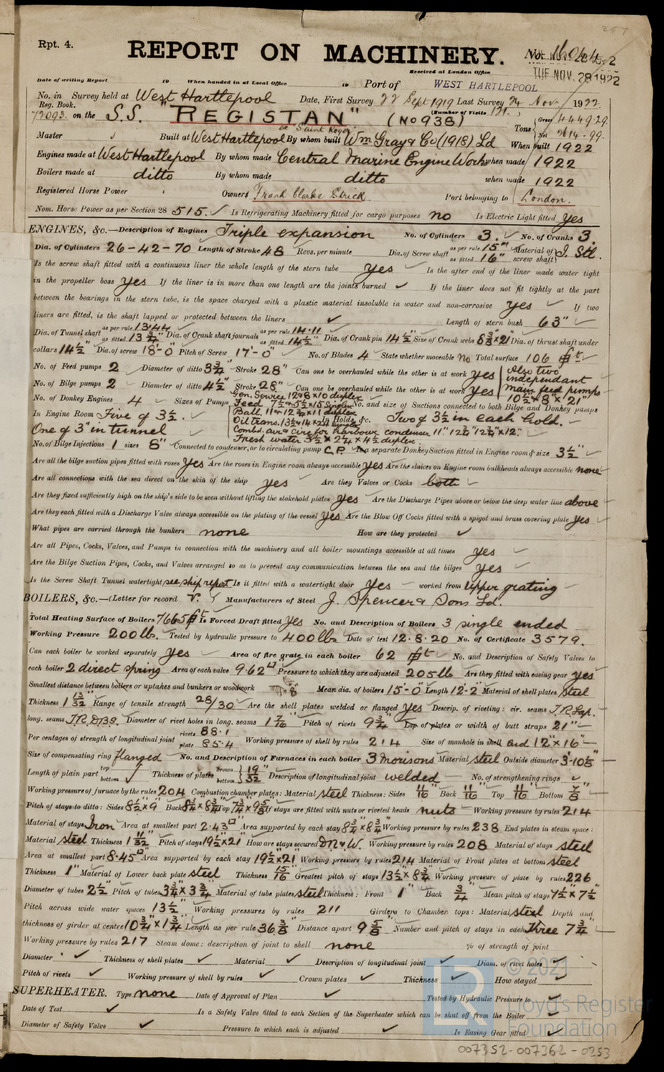 Rpt. 4.
REPORT ON MACHINERY.
TUE. NOV. 28 1922
Date of writing Report 19 When handed in at Local Office 19 Received at London Office
Port of WEST HARTLEPOOL
No. in Survey held at West Hartlepool Date, First Survey 22 Sept 1919 Last Survey 24 Nov. 1922
Reg. Book. on the S.S. "REGISTAN" (No 938) (Number of Visits
Master Built at West Hartlepool By whom built Wm Gray & Co (1918) Ld When built 1922
Engines made at West Hartlepool By whom made Central Marine Engine Works when made 1922
Boilers made at ditto By whom made ditto when made 1922
Registered Horse Power Owners Frank Clarke Strick Port belonging to London.
Nom. Horse Power as per Section 28 515. Is Refrigerating Machinery fitted for cargo purposes no Is Electric Light fitted yes
ENGINES, &c.—Description of Engines Triple expansion No. of Cylinders 3. No. of Cranks 3
Dia. of Cylinders 26-42-70 Length of Stroke 48 Revs. per minute Dia. of Screw shaft as per rule 15" as fitted 16" Material of screw shaft
Is the screw shaft fitted with a continuous liner the whole length of the stern tube yes Is the after end of the liner made water tight
in the propeller boss yes If the liner is in more than one length are the joints burned If the liner does not fit tightly at the part
between the bearings in the stern tube, is the space charged with a plastic material insoluble in water and non-corrosive yes If two
liners are fitted, is the shaft lapped or protected between the liners Length of stern bush 63"
Dia. of Tunnel shaft as per rule 13.44 as fitted 13¾" Dia. of Crank shaft journals as per rule 14.11 as fitted 14½" Dia. of Crank pin 14½" Size of Crank webs Dia. of thrust shaft under
collars 14½" Dia. of screw 18-0" Pitch of Screw 17-0" No. of Blades 4 State whether moveable no Total surface 106 ft
No. of Feed pumps 2 Diameter of ditto 3¾" Stroke 28" Can one be overhauled while the other is at work yes Also two
No. of Bilge pumps 2 Diameter of ditto 4½" Stroke 28" Can one be overhauled while the other is at work yes independant main feed pumps
No. of Donkey Engines 4 Sizes of Pumps No. and size of Suctions connected to both Bilge and Donkey pumps 10½"x8"x21"
In Engine Room Five of 3½. In Holds, &c. Two of 3½ in each hold.
One of 3" in tunnel
No. of Bilge Injections 1 sizes 8" Connected to condenser, or to circulating pump C.P. Is a separate Donkey Suction fitted in Engine room & size 3½"
Are all the bilge suction pipes fitted with roses yes Are the roses in Engine room always accessible yes Are the sluices on Engine room bulkheads always accessible none
Are all connections with the sea direct on the skin of the ship yes Are they Valves or Cocks both
Are they fixed sufficiently high on the ship's side to be seen without lifting the stokehold plates yes Are the Discharge Pipes above or below the deep water line above
Are they each fitted with a Discharge Valve always accessible on the plating of the vessel yes Are the Blow Off Cocks fitted with a spigot and brass covering plate yes
What pipes are carried through the bunkers none How are they protected
Are all Pipes, Cocks, Valves, and Pumps in connection with the machinery and all boiler mountings accessible at all times yes
Are the Bilge Suction Pipes, Cocks, and Valves arranged so as to prevent any communication between the sea and the bilges yes
Is the Screw Shaft Tunnel watertight see ship report Is it fitted with a watertight door yes worked from upper grating
BOILERS, &c.—(Letter for record Manufacturers of Steel J. Spencer & Sons Ld.
Total Heating Surface of Boilers 7665 ft Is Forced Draft fitted yes No. and Description of Boilers 3 single ended
Working Pressure 200 lb. Tested by hydraulic pressure to 400 lb Date of test 12.8.20 No. of Certificate 3579.
Can each boiler be worked separately yes Area of fire grate in each boiler 62 ft No. and Description of Safety Valves to
each boiler 2 direct spring Area of each valve 9.62 Pressure to which they are adjusted 205 lb Are they fitted with easing gear yes
Smallest distance between boilers or uptakes and bunkers or woodwork Mean dia. of boilers 15-0" Length 12-2 Material of shell plates steel
Thickness 1 13/32 Range of tensile strength 28/30 Are the shell plates welded or flanged yes Descrip. of riveting: cir. seams T.R.Lap.
long. seams T.R.D.B.S. Diameter of rivet holes in long. seams 1 7/16 Pitch of rivets 9¾" Lap of plates or width of butt straps 21"
Per centages of strength of longitudinal joint rivets 88.1 plate 85.4 Working pressure of shell by rules 214 Size of manhole in shell end 12"x16"
Size of compensating ring flanged No. and Description of Furnaces in each boiler 3 Morisons Material steel Outside diameter
Length of plain part top bottom Thickness of plates Description of longitudinal joint welded No. of strengthening rings
Working pressure of furnace by the rules 204 Combustion chamber plates: Material steel Thickness: Sides 11/16 Back 11/16 Top 11/16 Bottom
Pitch of stays to ditto: Sides Back Top If stays are fitted with nuts or riveted heads nuts Working pressure by rules 214
Material of stays Iron Area at smallest part 2.43 Area supported by each stay 8¾x8¾ Working pressure by rules 238 End plates in steam space:
Material steel Thickness 1 5/32 Pitch of stays 19½"x21 How are stays secured Working pressure by rules 208 Material of stays steel
Area at smallest part 8.45 Area supported by each stay 19½x21 Working pressure by rules 214 Material of Front plates at bottom steel
Thickness 1" Material of Lower back plate steel Thickness Greatest pitch of stays Working pressure of plate by rules 226
Diameter of tubes 2½ Pitch of tubes 3¾x3¾ Material of tube plates steel Thickness: Front 1" Back ¾ Mean pitch of stays 7½x7½
Pitch across wide water spaces 13½" Working pressures by rules 211 Girders to Chamber tops: Material steel Depth and
thickness of girder at centre Length as per rule Distance apart Number and pitch of stays in each three 7¾
Working pressure by rules 217 Steam dome: description of joint to shell none % of strength of joint
Diameter Thickness of shell plates Material Description of longitudinal joint Diam. of rivet holes
Pitch of rivets Working pressure of shell by rules Crown plates Thickness How stayed
SUPERHEATER. Type none Date of Approval of Plan Tested by Hydraulic Pressure to
Date of Test Is a Safety Valve fitted to each Section of the Superheater which can be shut off from the Boiler
Diameter of Safety Valve Pressure to which each is adjusted Is Easing Gear fitted
© 2021
Lloyd's Register
Foundation
007352-007362-0253